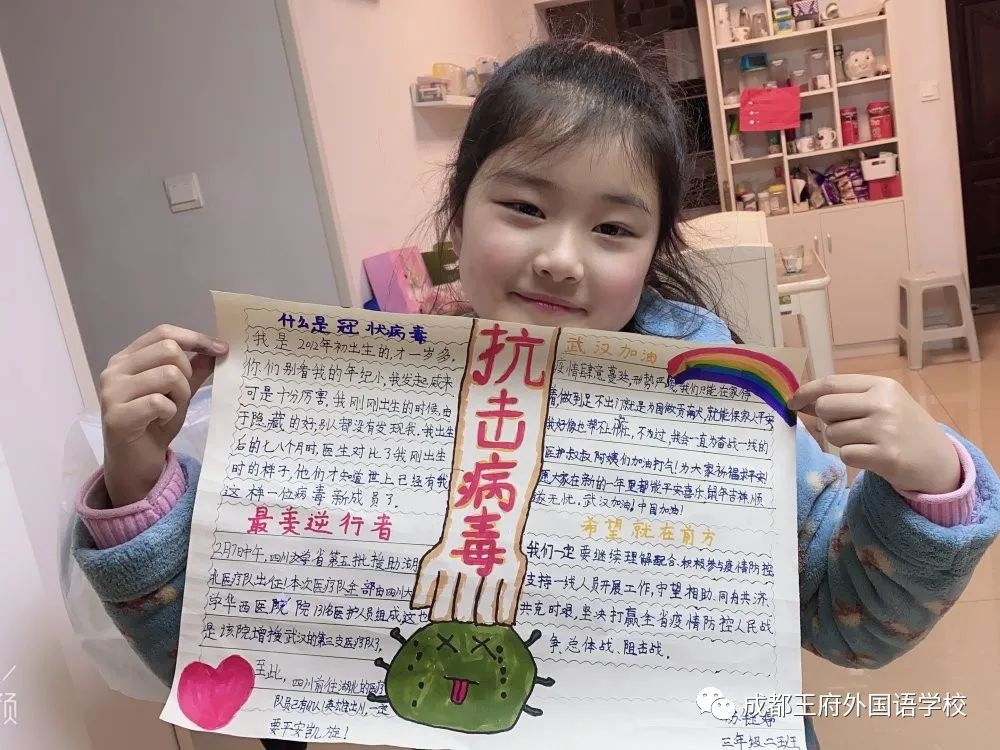 什么是冠状病毒
我是2012年初出生的,才一岁多,
你们别看我的年纪小,我发起威来
可是十分厉害,我刚刚出生的时候,由
于隐藏的好,别人都没有发现我。我出生
后的七八个月时,医生对比了我刚出生
时的样子,他们才知道世上已经有我
这样一位病毒新成员了。
最美逆行者
2月7日中午,四川大学省第五批援助湖
北医疗队出征!本次医疗队全部由四川大
学华西医院院131名医护人员组成这也
是该院增援武汉的第三支医疗队了。
至此,四川前往湖北的医疗
队员已有
要平安凯旋!
抗击病毒
武汉加油
疫情肆意蔓延,形势严峻,我们只能在家待
着做到足不出门就是为国做贡献,就能保家人平安
我好像也帮不上忙,不为过,我会一直为奋战一线的
医护叔叔阿姨们加油打气!为大家祈福求平安!
愿大家在新的一年里都能平安喜乐,鼠年吉祥顺
遂无忧。武汉加油!中国加油!
希望就在前方
我们一定要继续理解配合,积极参与疫情防控
支持一线人员开展工作,守望相助、同舟共济、
共克时艰,坚决打赢全省疫情防控人民战
争总体战、阻击战。
三年级二班
成都王府外国语学校